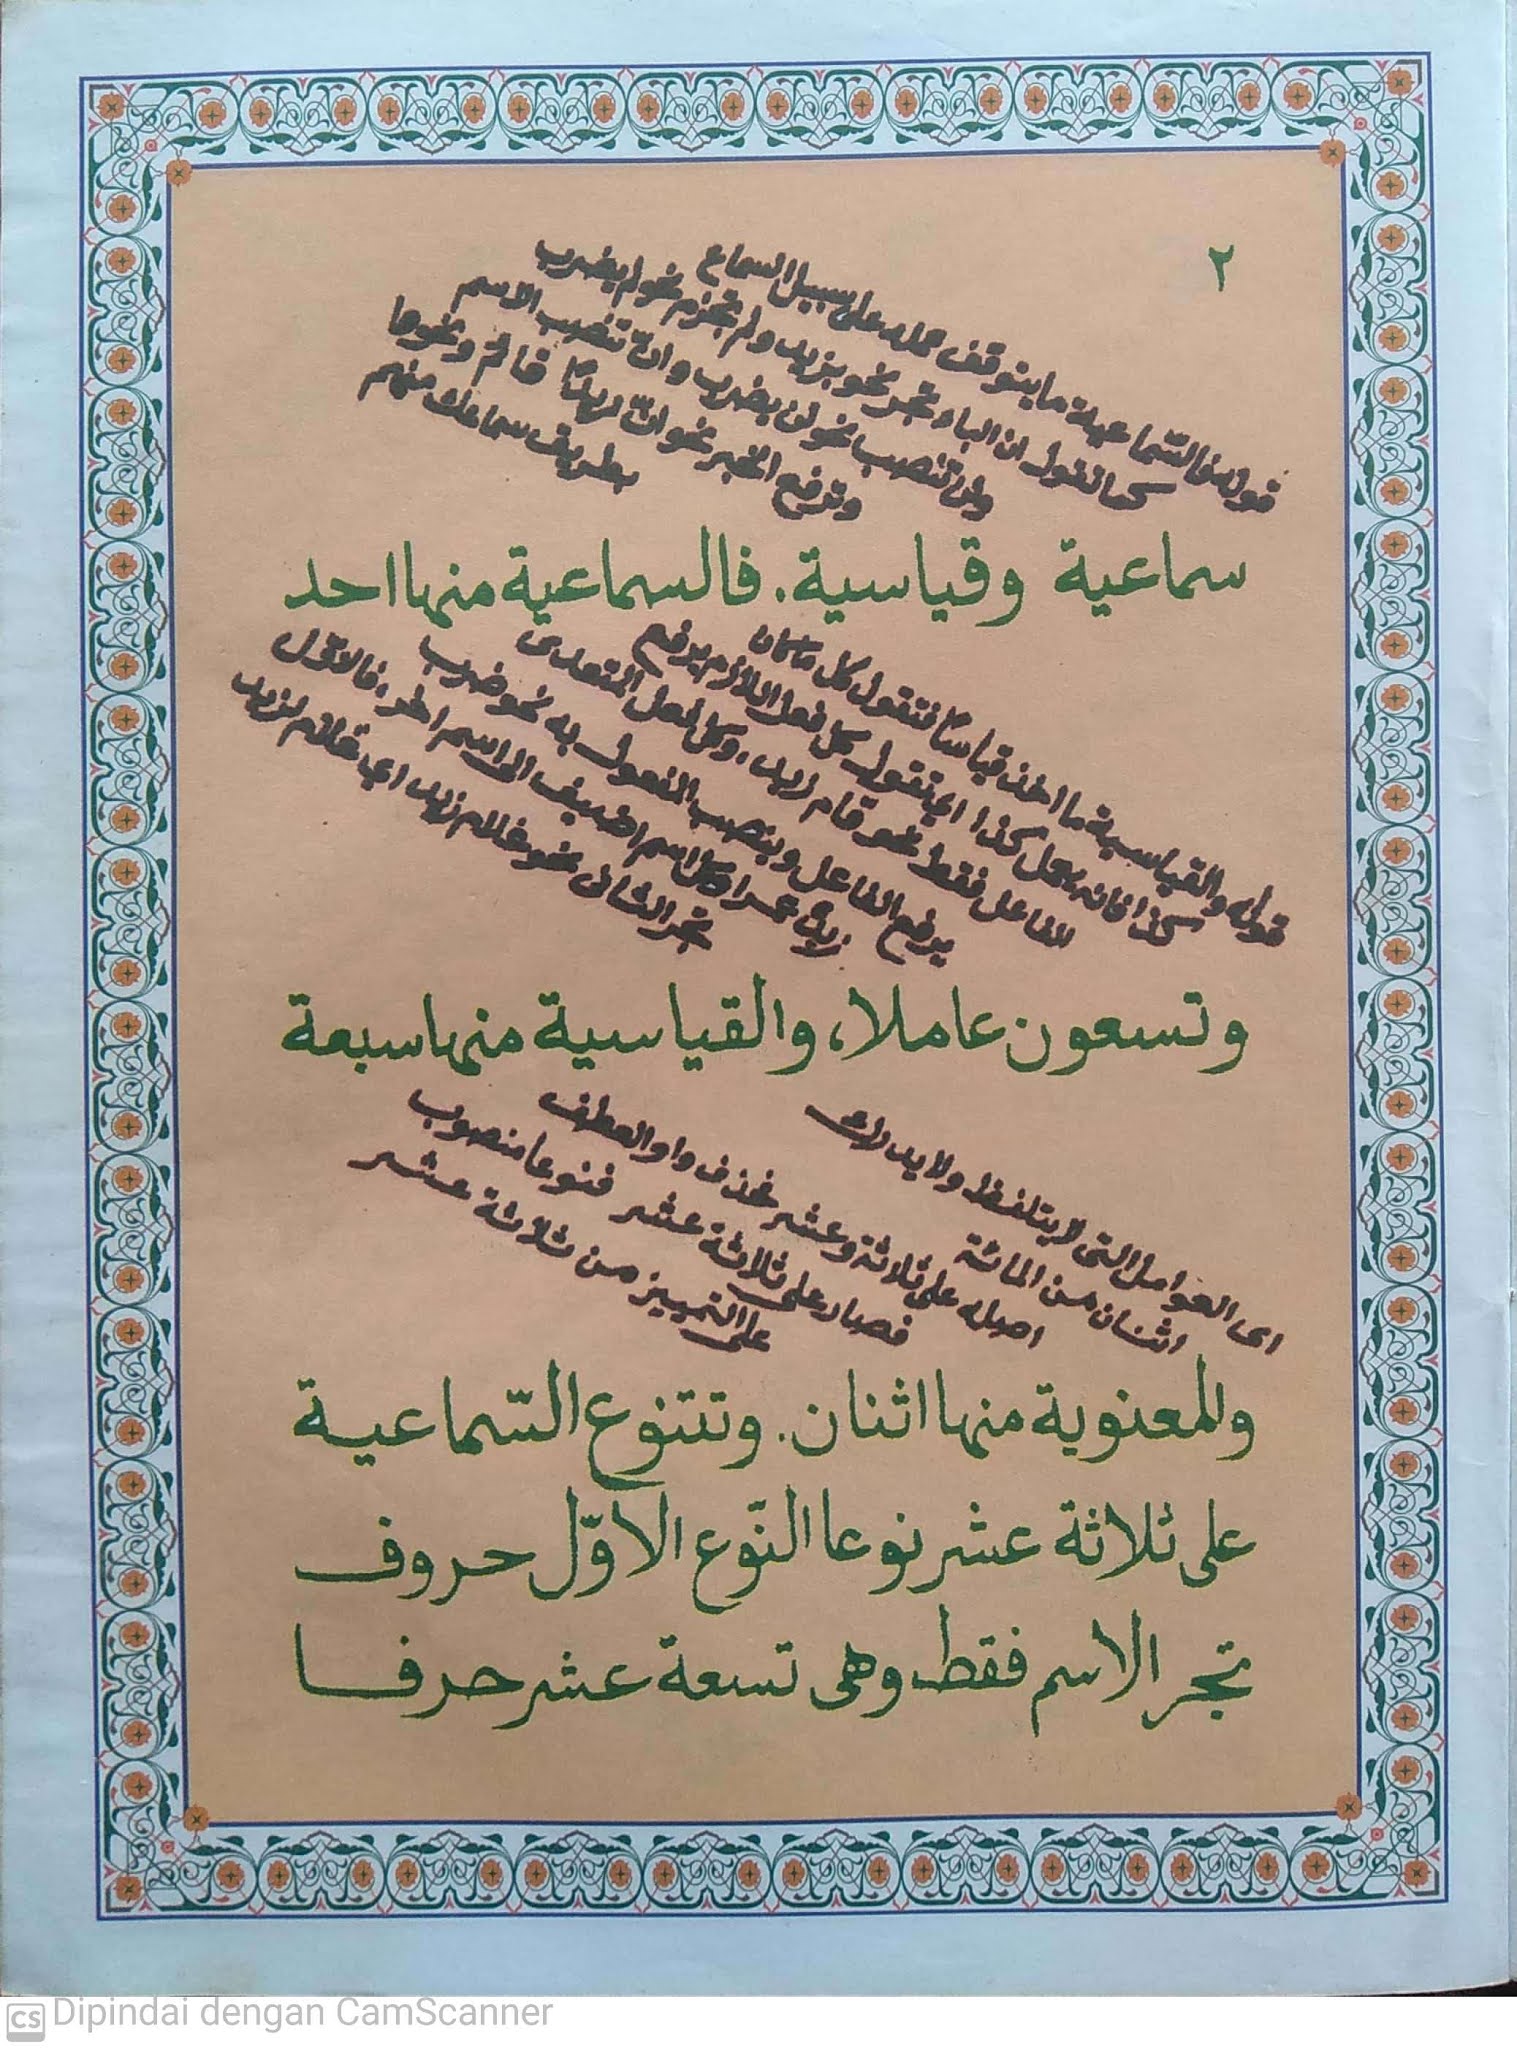 ٢
قوله فالسّماعية ما يتوقف عمله على سبيل السماع
كما تقول ان الباء تجر نحو بزيد ولم تجزم نحو لم يضرب
ولن تنصب نحو لن يضرب وانّ تنصب الاسم
وترفع الخبر نحو انّ زيدًا قائم ونحوها
بطريق سماعك منهم
سماعية وقياسية. فالسماعية منها احد
قوله والقياسية ما اخذ قياسًا فتقول كل ما كان
كذا فانه يعمل كذا اي تقول كل فعل اللازم يرفع
الفاعل فقط نحو قام زيد، وكل فعل المتعدى
يرفع الفاعل وينصب المفعول به نحو ضرب
زيدٌ عمرا وكل اسم اضيف الى اسم اخر، فالاوّل
تجر الثانى نحو غلام زيد اي غلام لزيد
وتسعون عاملا، والقياسية منها سبعة
اى العوامل التى لا يتلفظ ولا يدرك
اثنان من المائة
اصله على ثلاثة وعشر فحذف واو العطف
فصار على ثلاثة عشر فنوعا منصوب
على التمييز من ثلاثة عشر
والمعنوية منها اثنان. وتتنوع السّماعية
على ثلاثة عشر نوعا النّوع الاوّل حروف
تجر الاسم فقط وهى تسعة عشر حرفا
CS Dipindai dengan CamScanner